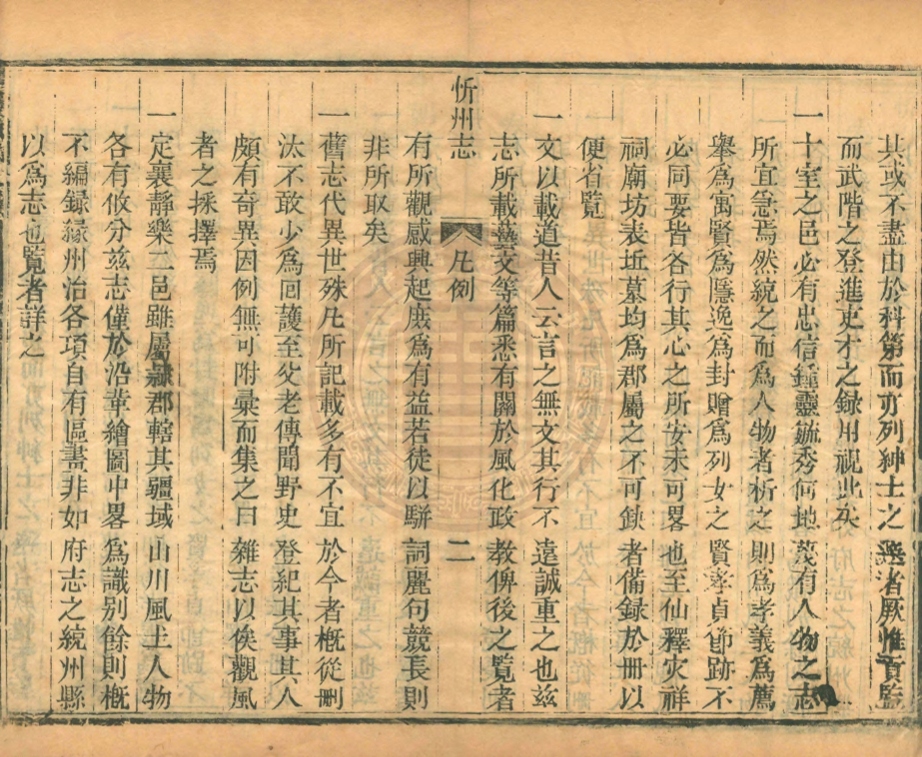 其或不盡由於科第而亦列紳士之選者厥惟貢監
而武階之登進吏才之録用視此矣
一十室之邑必有忠信鍾靈毓秀何地蔑有人物之志
所宜急焉然統之而爲人物者析之則爲孝義爲薦
舉爲寓賢爲隱逸爲封贈爲列女之賢孝貞節跡不
必同要皆各行其心之所安未可畧也至仙釋災祥
祠廟坊表坵墓均爲郡屬之不可缺者備録於册以
便省覽
一文以載道昔人云言之無文其行不遠誠重之也兹
志所載藝文等篇悉有關於風化政教俾後之覽者
忻州志 凡例 二
有所觀感興起庶爲有益若徒以駢詞麗句競長則
非所取矣
一舊志代異世殊凡所記載多有不宜於今者概從刪
汰不敢少爲回護至父老傳聞野史登紀其事其人
頗有奇異因例無可附彙而集之曰雜志以俟觀風
者之採擇焉
一定襄靜樂二邑雖屬隸郡轄其疆域山川風土人物
各有攸分兹志僅於沿革繪圖中畧爲識別餘則概
不編録緣州治各項自有區畫非如府志之統州縣
以爲志也覽者詳之